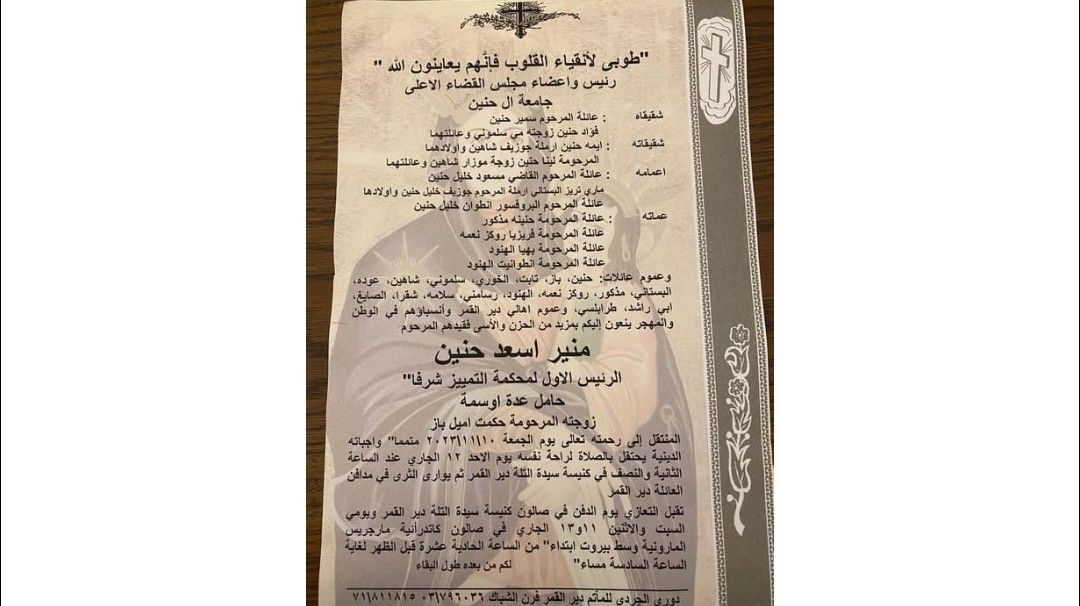 "طوبى لأنقياء القلوب فإنَّهم يعاينون الله "
رئيس واعضاء مجلس القضاء الاعلى
جامعة ال حنين
شقيقاه : عائلة المرحوم سمير حنين
فؤاد حنين زوجته مي سلموني وعائلتهما
شقيقاته : ايمه حنين ارملة جوزيف شاهين واولادهما
المرحومة لينا حنين زوجة موزار شاهين وعائلتهما
اعمامه : عائلة المرحوم القاضي مسعود خليل حنين
ماري تريز البستاني ارملة المرحوم جوزيف خليل حنين واولادها
عائلة المرحوم البروفسور انطوان خليل حنين
عماته : عائلة المرحومة حنينه مذكور
عائلة المرحومة فريزيا روكز نعمه
عائلة المرحومة بهيا الهنود
عائلة المرحومة انطوانيت الهنود
وعموم عائلات: حنين، باز، تابت، الخوري، سلموني، شاهين، عوده،
البستاني، مذكور، روكز نعمه، الهنود، رسامني، سلامه، شقرا، الصايغ،
ابي راشد، طرابلسي، وعموم اهالي دير القمر وأنسباؤهم في الوطن
والمهجر ينعون إليكم بمزيد من الحزن والأسى فقيدهم المرحوم
منير اسعد حنين
الرئيس الاول لمحكمة التمييز شرفا"
حامل عدة اوسمة
زوجته المرحومة حكمت اميل باز
المنتقل إلى رحمته تعالى يوم الجمعة ١٠\١١\٢٠٢٣ متمما" واجباته
الدينية يحتفل بالصلاة لراحة نفسه يوم الاحد ١٢ الجاري عند الساعة
الثانية والنصف في كنيسة سيدة التلة دير القمر ثم يوارى الثرى في مدافن
العائلة دير القمر
تقبل التعازي يوم الدفن في صالون كنيسة سيدة التلة دير القمر ويومي
السبت والاثنين ١١و١٣ الجاري في صالون كاتدرائية مارجريس
المارونية وسط بيروت ابتداء" من الساعة الحادية عشرة قبل الظهر لغاية
الساعة السادسة مساء" لكم من بعده طول البقاء
دوري الجردي للمآتم دير القمر فرن الشباك ٠٣\٧٩٦٠٣٦ ٧١\٨١١٨١٥